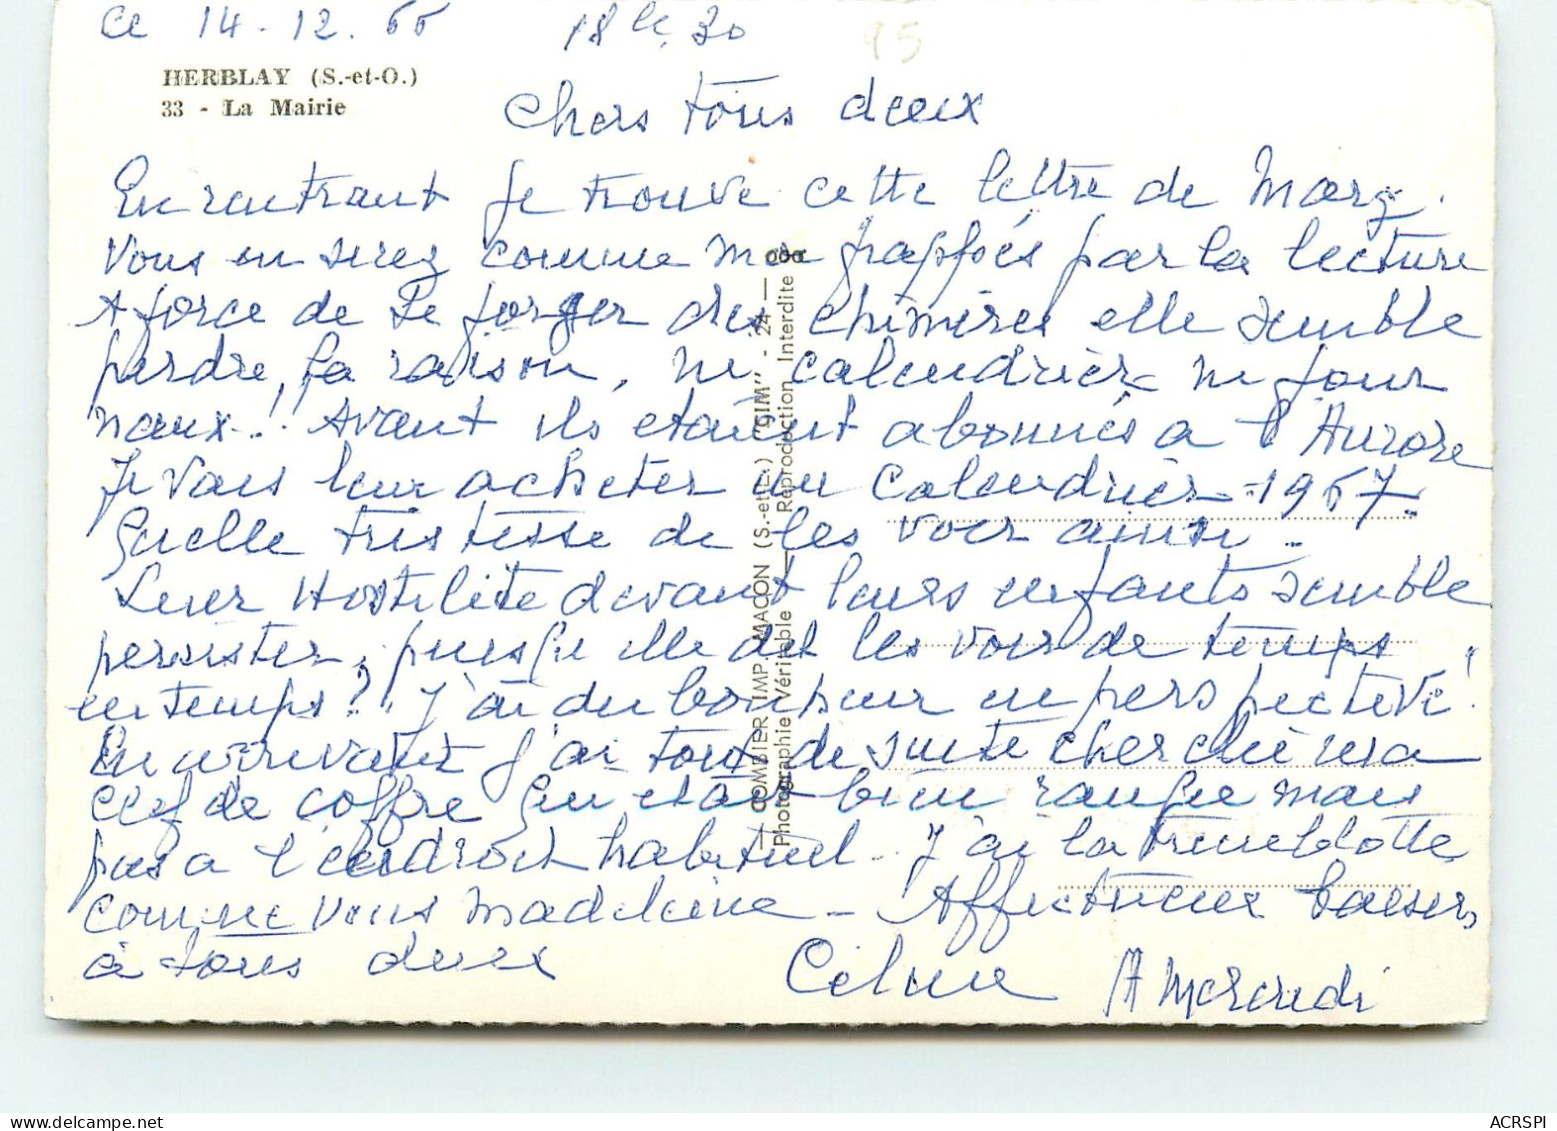 Ce 14-12.66 18 h, 30
95
HERBLAY (S.-et-O.)
33 - La Mairie
Chers tous deux
En rentrant je trouve cette lettre de Marg.
Vous en serez comme moi frappés par la lecture
A force de se forger des chimères elle semble
perdre, la raison, ni calendrier ni jour
naux!! Avant ils étaient abonnés a l'Aurore
Je vais leur acheter un calendrier 1967.
Quelle tristesse de les voir ainsi.
Leur Hostilité devant leurs enfants semble
persister, puisqu'elle dit les voir de temps
en temps?. J'ai du bonheur en perspective!
En arrivant j'ai tout de suite cherché ma
clef de coffre qui était bien rangée mais
pas a l'endroit habituel. J'ai la tremblotte
comme vous Madeleine - Affectueux baisers
à tous deux Céline A Mercredi
— COMBIER IMP. MACON (S.-et-L.) "CIM" - 24 —
Photographie Véritable — Reproduction Interdite
www.delcampe.net
ACRSPI